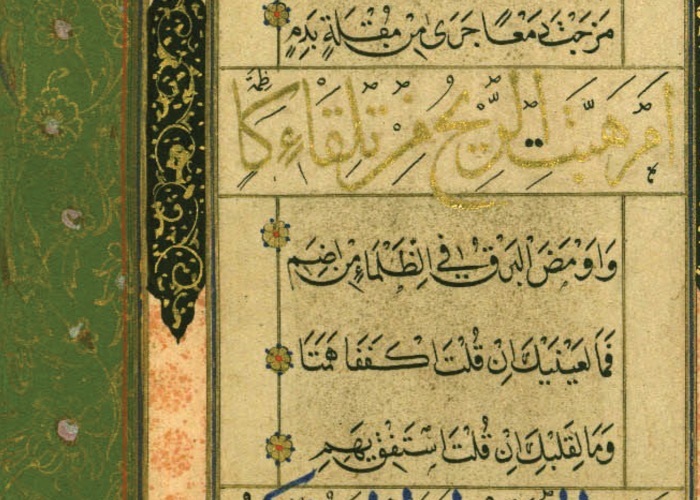 مَزَجْتَ دَمْعًا جَرَى مِنْ مُقْلَةٍ بِدَمِ
اَمْ هَبَّتِ الرِّيحُ مِنْ تِلْقَاءِ كَاظِمَةٍ
وَاَوْمَضَ الْبَرْقُ فِي الظَّلْمَاءِ مِنْ اِضَمِ
فَمَا لِعَيْنَيْكَ اِنْ قُلْتَ اكْفُفَا هَمَتَا
وَمَا لِقَلْبِكَ اِنْ قُلْتَ اسْتَفِقْ يَهِمِ